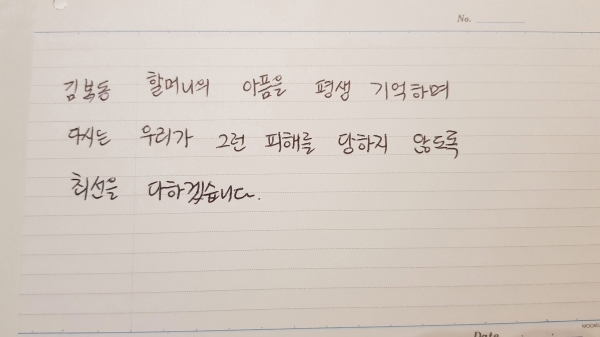 No.
김복동 할머니의 아픔을 평생 기억하며
다시는 우리가 그런 피해를 당하지 않도록
최선을 다하겠습니다.
Date